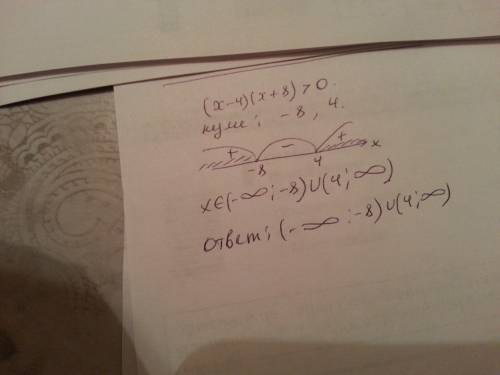 (x-4)(x+8)>0.
нули; -8, 4.
+ - +
-8 4 x
x∈(-∞;-8)∪(4;∞)
ответ; (-∞:-8)∪(4;∞)